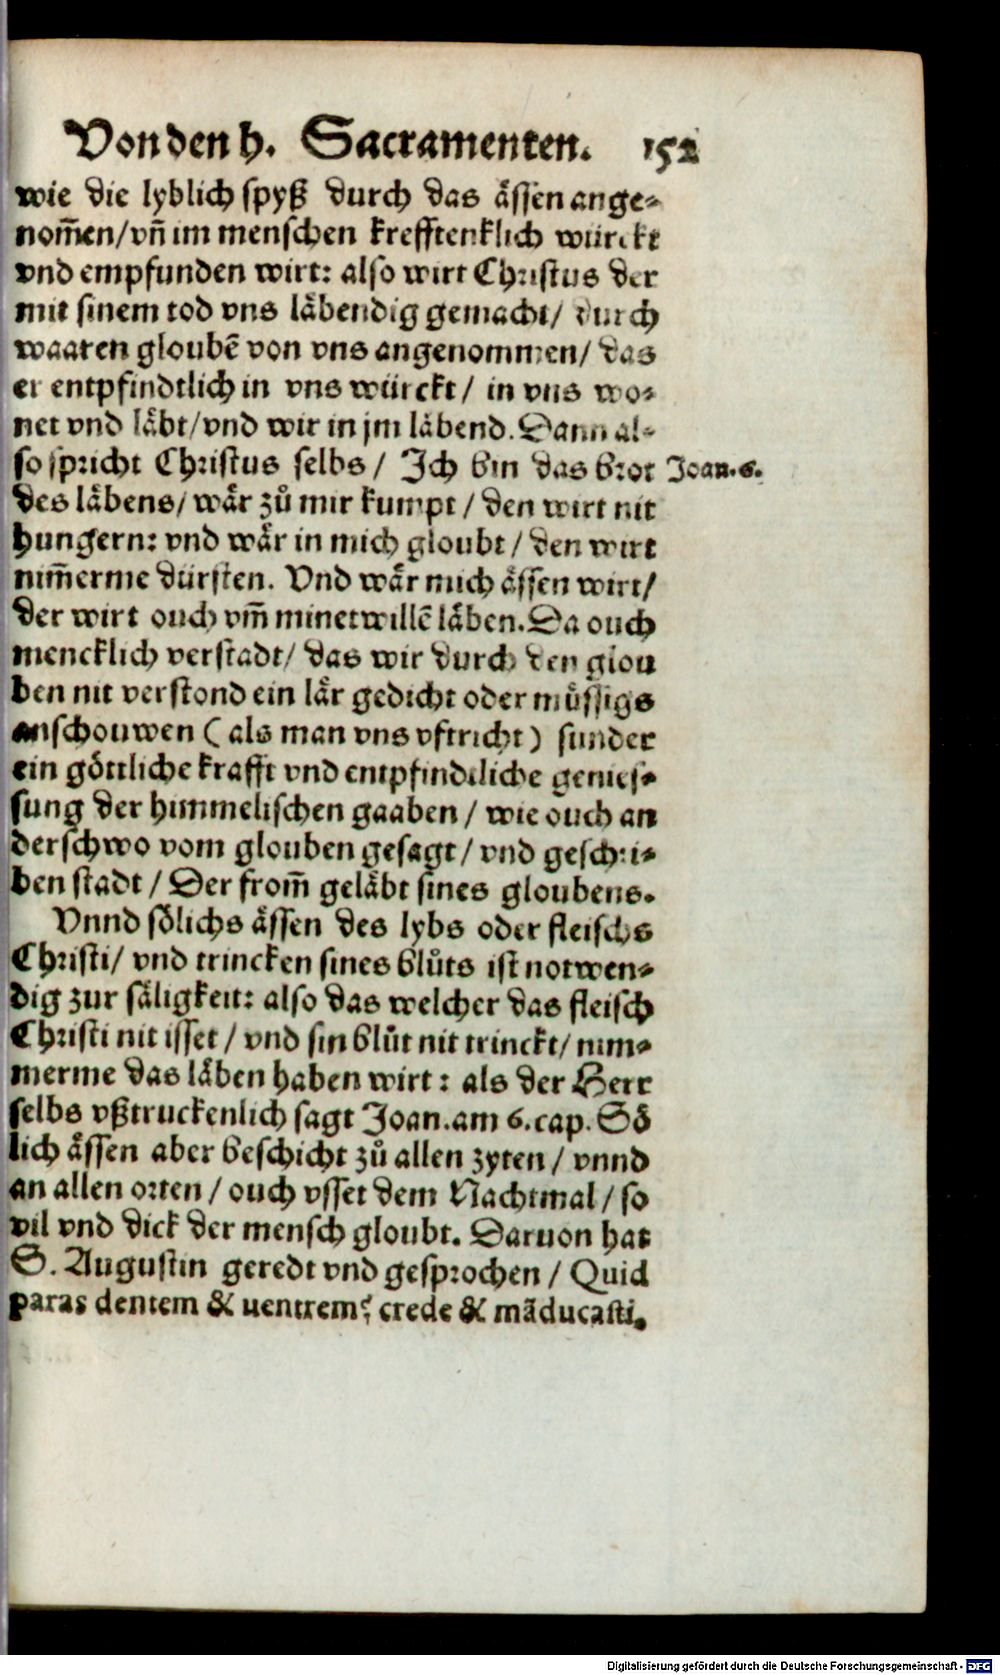 Von den h. Sacramenten. 152
wie die lyblich spyß durch das åssen ange-
nom̃en/vn̄ im menschen krefftenklich würckt
vnd empfunden wirt: also wirt Christus der
mit sinem tod vns låbendig gemacht/ durch
waaren gloubē von vns angenommen/ das
er entpfindtlich in vns würckt/ in vns wo-
net vnd låbt/vnd wir in jm låbend. Dann al-
so spricht Christus selbs/ Ich bin das brot Joan. 6.
des låbens/ wår zů mir kumpt/ den wirt nit
hungern: vnd wår in mich gloubt/ den wirt
nim̃erme dürsten. Vnd wår mich åssen wirt/
der wirt ouch vm̃ minetwillē låben. Da ouch
mencklich verstadt/ das wir durch den glou
ben nit verstond ein lår gedicht oder müssigs
anschouwen (als man vns vftricht) sunder
ein göttliche krafft vnd entpfindtliche genies-
sung der himmelischen gaaben/ wie ouch an
derschwo vom glouben gesagt/ vnd geschri-
ben stadt/ Der from̃ gelåbt sines gloubens.
Vnnd sölichs åssen des lybs oder fleischs
Christi/ vnd trincken sines blůts ist notwen-
dig zur såligkeit: also das welcher das fleisch
Christi nit isset/ vnd sin blůt nit trinckt/ nim-
merme das låben haben wirt: als der Herr
selbs vßtruckenlich sagt Joan. am 6. cap. Sö
lich åssen aber beschicht zů allen zyten/ vnnd
an allen orten/ ouch vsset dem Nachtmal/ so
vil vnd dick der mensch gloubt. Daruon hat
S. Augustin geredt vnd gesprochen/ Quid
paras dentem & uentrem? crede & māducasti.
Digitalisierung gefördert durch die Deutsche Forschungsgemeinschaft - DFG